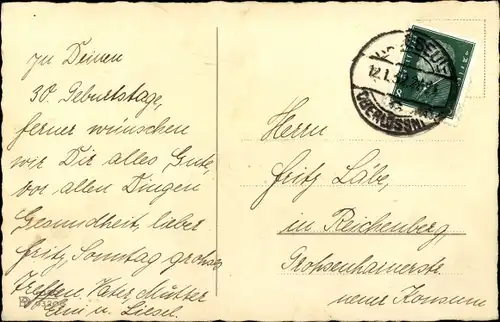 zu Deinen
30. Geburtstage,
ferner wünschen
wir Dir alles Gute,
vor allen Dingen
Gesundheit, lieber
Fritz, Sonntag großes
Treffen. Vater Mutter
Erni u. Liesel.
Herrn
Fritz Läbe,
in Reichenberg,
Großenhainerstr.
neuer Konsum
12.1.3